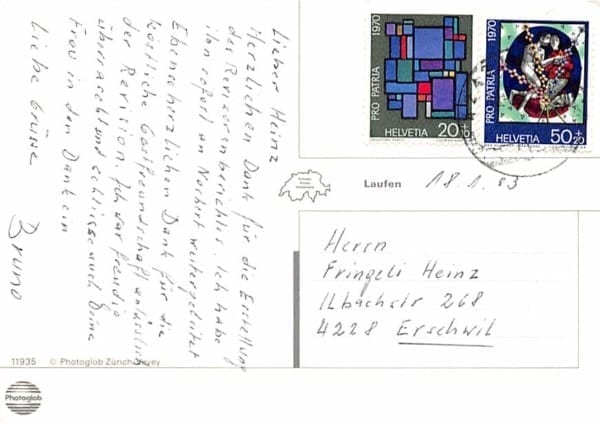 Lieber Heinz
Herzlichen Dank für die Erstellung
des Revisorenberichtes. Ich habe
ihn sofort an Norbert weitergeleitet
Ebenso herzlichen Dank für die
köstliche Gastfreundschaft anlässlich
der Revision. Ich war freudig
überrascht und schliesse auch Deine
Frau in den Dank ein
Liebe Grüsse
Bruno
PRO PATRIA 1970
HELVETIA 20+10
PRO PATRIA 1970
HELVETIA 50+20
Laufen
18.1.83
Herrn
Fringeli Heinz
Ilbachstr 268
4228 Erschwil
11935 © Photoglob Zürich/Vevey
Photoglob